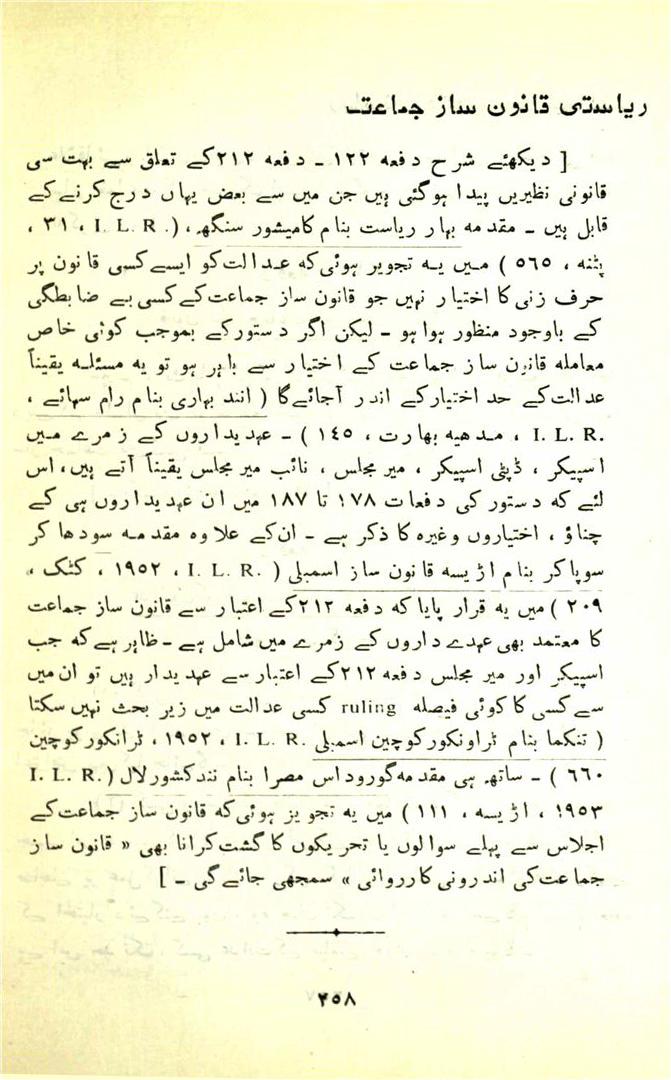 ریاستی قانون ساز جماعت
[ دیکھئے شرح دفعہ ۱۲۲ ـ دفعہ ۲۱۲ کے تعلق سے بہت سی
قانونی نظیریں پیدا ہوگئی ہیں جن میں سے بعض یہاں درج کرنے کے
قابل ہیں ـ مقدمہ بہار ریاست بنام کامیشور سنگھ، (I. L. R. ، ۳۱ ،
پٹنہ ، ۵٦۵ ) میں یہ تجویر ہوئی کہ عدالت کو ایسے کسی قانون پر
حرف زنی کا اختیار نہیں جو قانون ساز جماعت کے کسی بے ضابطگی
کے باوجود منظور ہوا ہو ـ لیکن اگر دستور کے بموجب کوئی خاص
معاملہ قانون ساز جماعت کے اختیار سے باہر ہو تو یہ مسئلہ یقیناً
عدالت کے حد اختیار کے اندر آجائے گا ( انند بہاری بنام رام سہائے ،
I. L. R. ، مدھیہ بھارت ، ۱٤۵ ) ـ عہدیداروں کے زمرے میں
اسپیکر ، ڈپٹی اسپیکر ، میر مجلس ، نائب میر مجلس یقیناً آتے ہیں، اس
لئے کہ دستور کی دفعات ۱۷۸ تا ۱۸۷ میں ان عہدیداروں ہی کے
چناؤ ، اختیاروں وغیرہ کا ذکر ہے ـ ان کے علاوہ مقدمہ سودھا کر
سوپاکر بنام اڑیسہ قانون ساز اسمبلی ( I. L. R. ، ۱۹۵۲ ، کٹک ،
۲۰۹ ) میں یہ قرار پایا کہ دفعہ ۲۱۲ کے اعتبار سے قانون ساز جماعت
کا معتمد بھی عہدے داروں کے زمرے میں شامل ہے ـ ظاہر ہے کہ جب
اسپیکر اور میر مجلس دفعہ ۲۱۲ کے اعتبار سے عہدیدار ہیں تو ان میں
سے کسی کا کوئی فیصلہ ruling کسی عدالت میں زیر بحث نہیں سکتا
( تنکما بنام ٹراونکور کوچین اسمبلی I. L. R. ، ۱۹۵۲ ، ٹرانکور کوچین
٦٦۰ ) ـ ساتھ ہی مقدمہ گوروداس مصرا بنام نند کشور لال ( I. L. R.
۱۹۵۳ ، اڑیسہ ، ۱۱۱ ) میں یہ تجویز ہوئی کہ قانون ساز جماعت کے
اجلاس سے پہلے سوالوں یا تحریکوں کا گشت کرانا بھی « قانون ساز
جماعت کی اندرونی کارروائی » سمجھی جائے گی ـ ]
۴۵۸